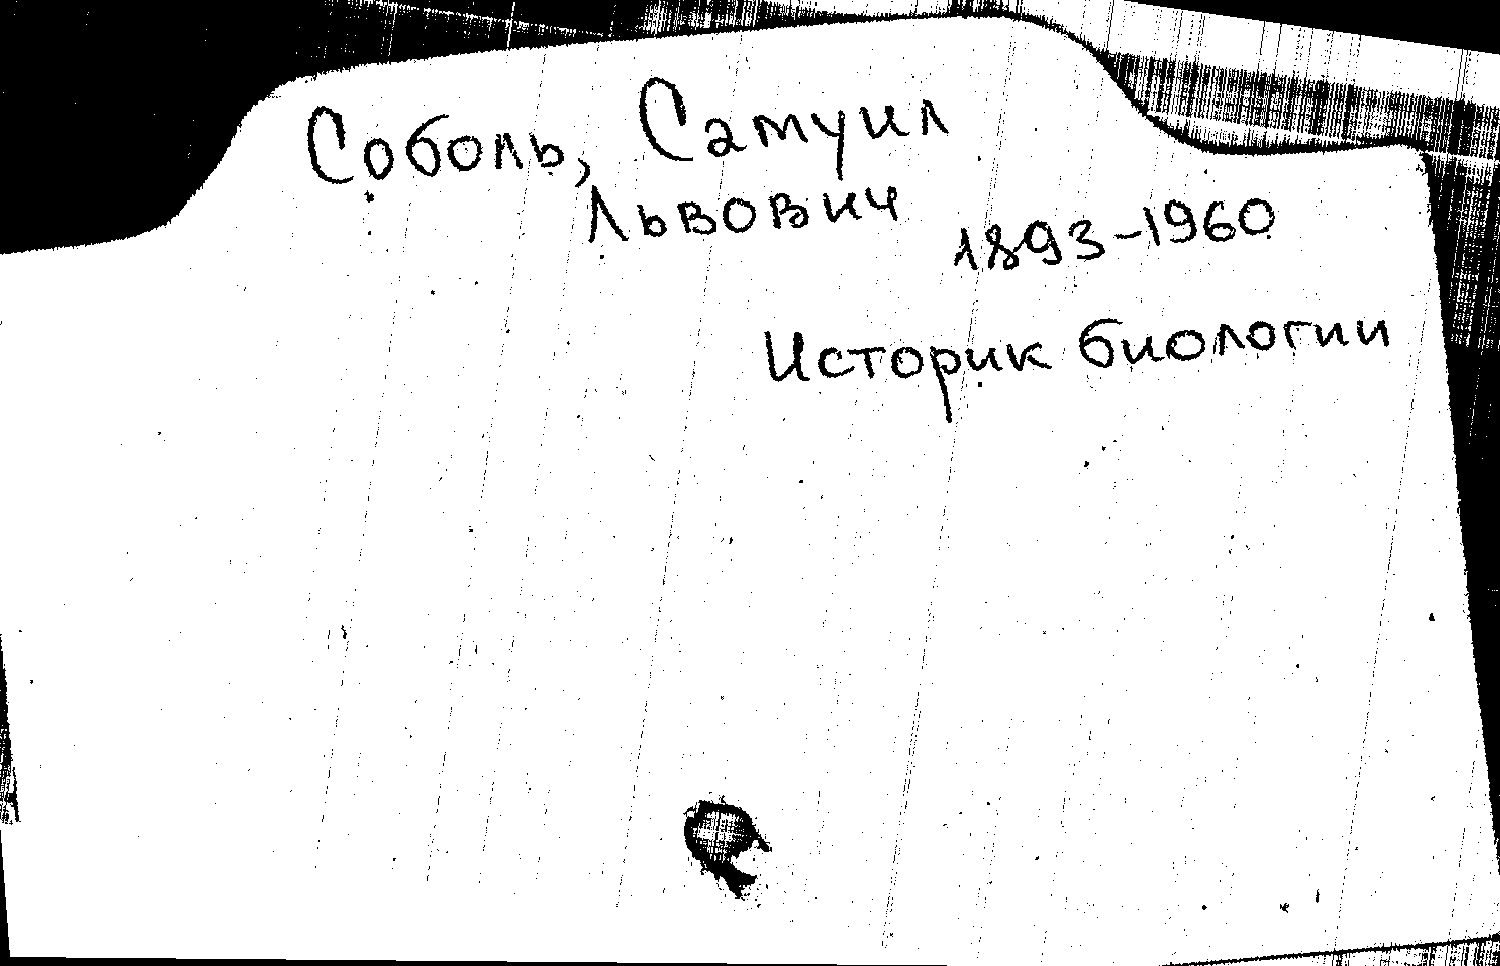 Соболь, Самуил
Львович
1893-1960
Историк биологии